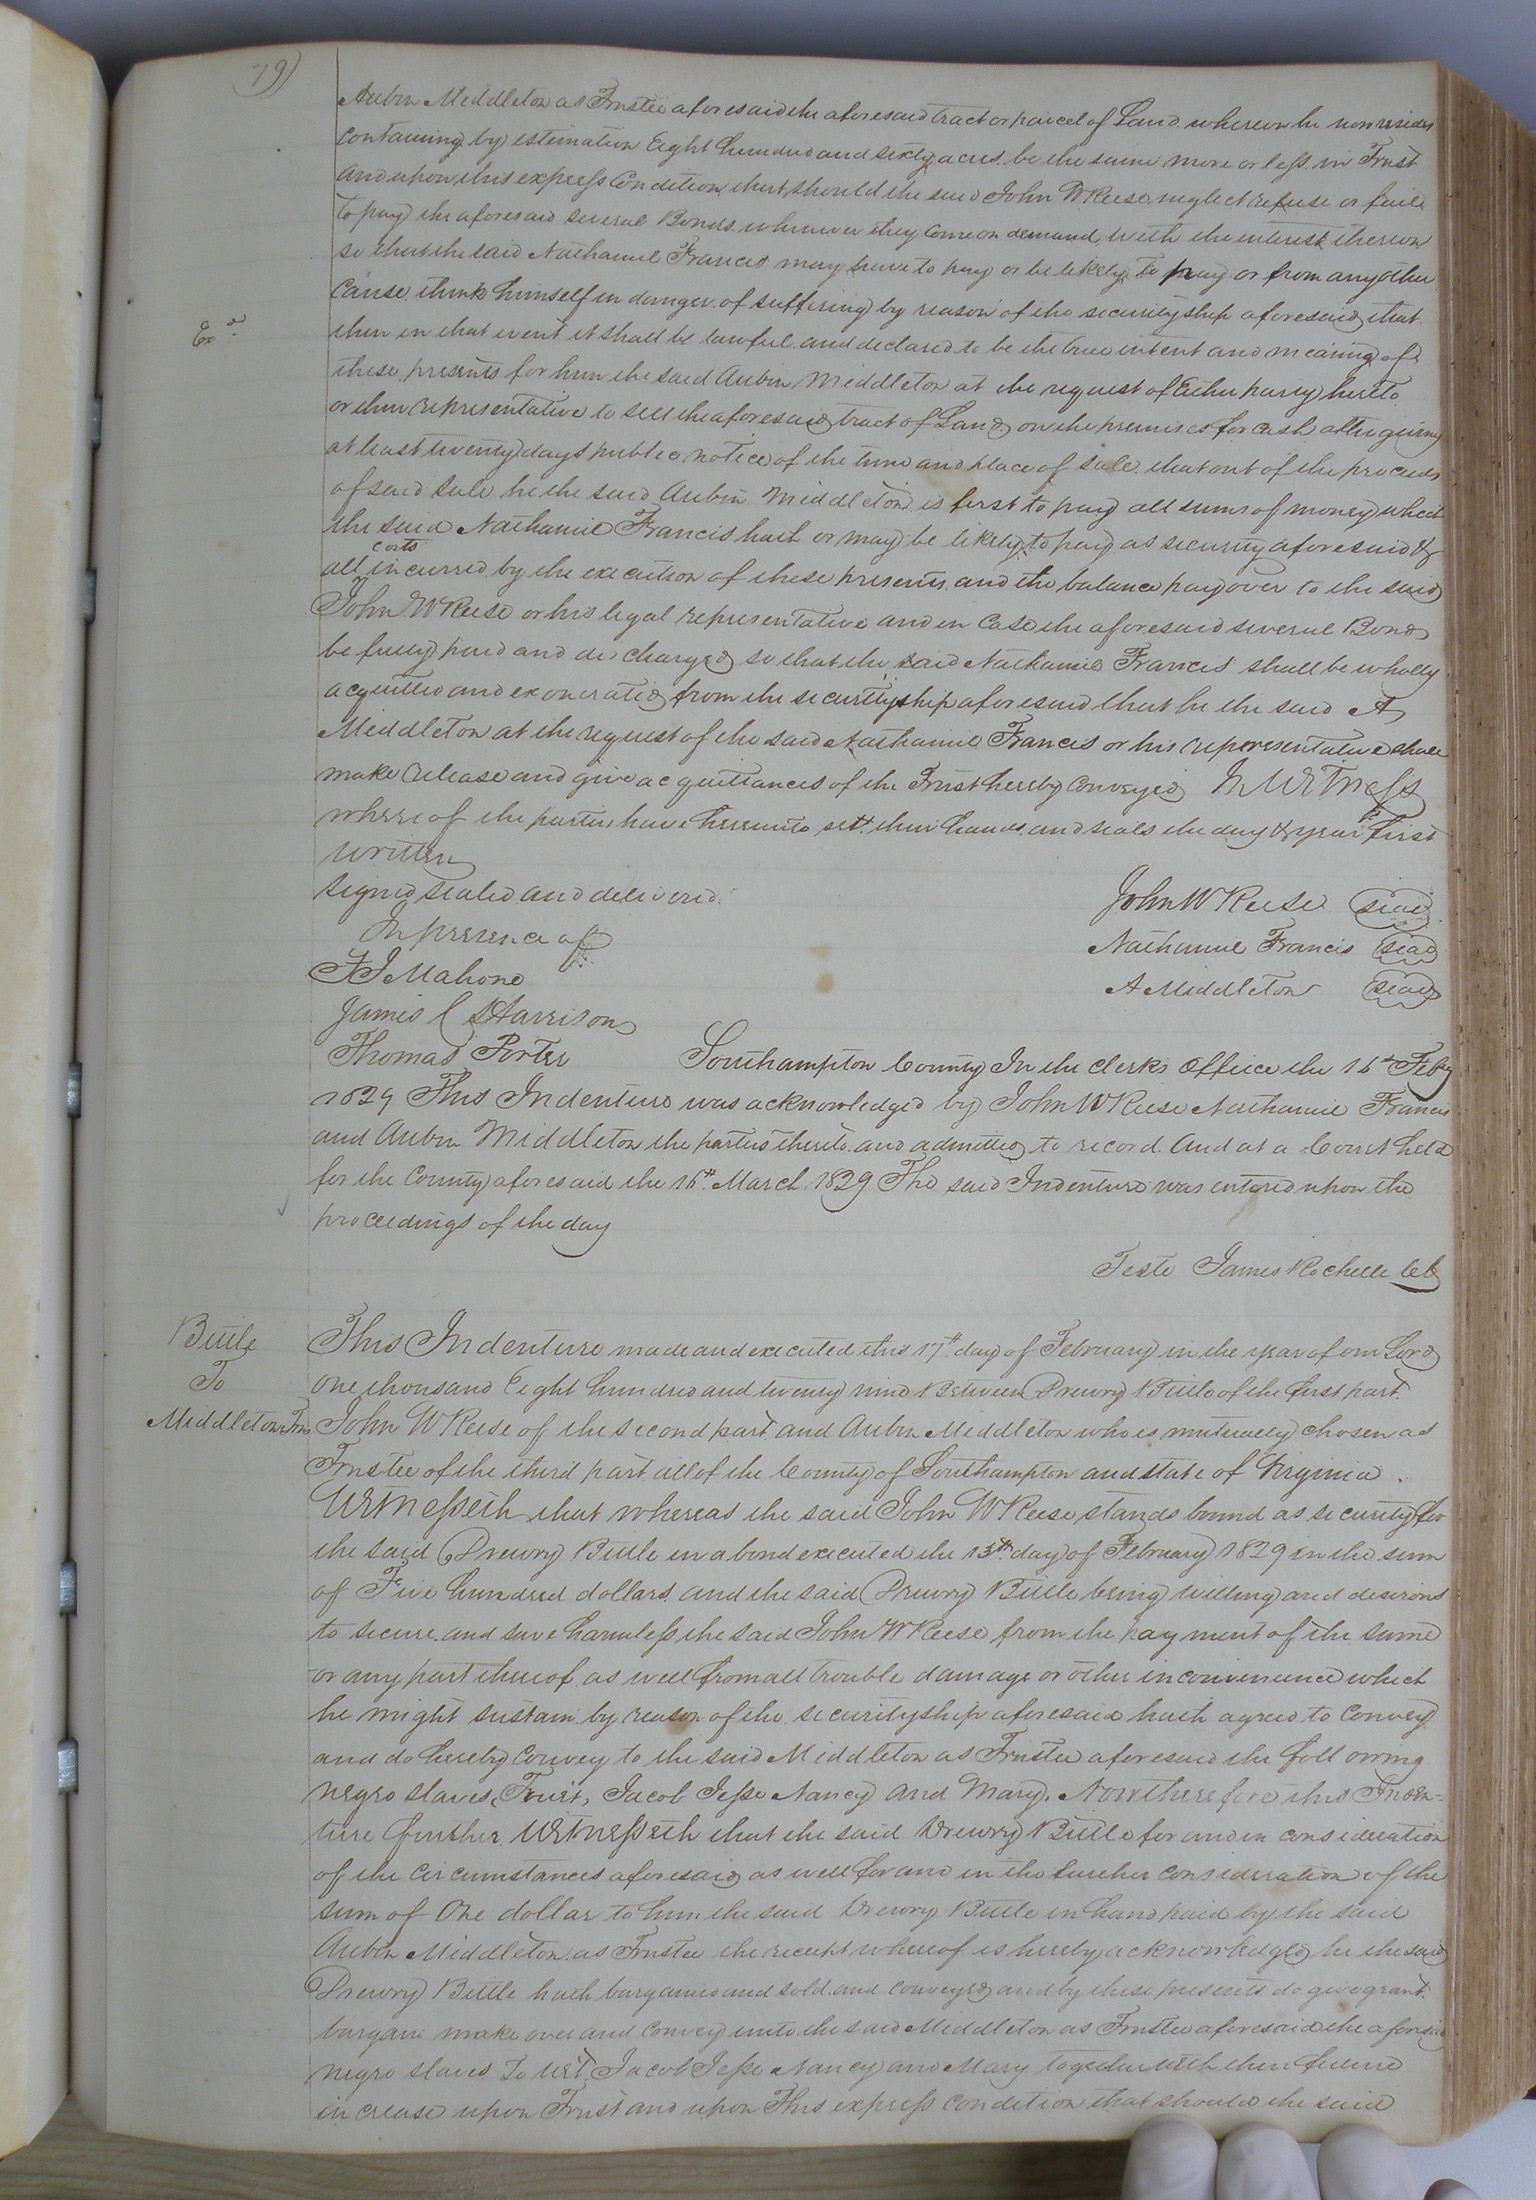 79)
Aubin Middleton as Trustee aforesaid the aforesaid tract or parcel of Land whereon he now resides
containing by estimation Eight hundred and sixty acres be the same more or less in Trust
and upon this express Condition that should the said John W Reese neglect refuse or faile
to pay the aforesaid several Bonds whenever they come on demand with the interest thereon
so that the said Nathaniel Francis may have to pay or be likely to pay or from any other
Cause think himself in danger of suffering by reason of the securityship aforesaid that
Exd.
then in that event it shall be lawful and declared to be the true intent and meaning of
these presents for him the said Aubin Middleton at the request of Either party hereto
or their representative to sell the aforesaid tract of Land on the premises for cash after giving
at least twenty days public notice of the time and place of sale that out of the proceeds
of said sale he the said Aubin Middleton is first to pay all sums of money which
the said Nathaniel Francis hath or may be likely to pay as security aforesaid &
costs
all incurred by the execution of these presents and the balance pay over to the said
John W Reese or his legal representative and in Case the aforesaid several Bonds
be fully paid and discharged so that the said Nathaniel Francis shall be wholly
acquitted and exonerated from the securityship aforesaid that he the said A
Middleton at the request of the said Nathaniel Francis or his representative shall
make release and give acquittances of the Trust hereby Conveyed In Witness
whereof the parties have hereunto set their hands and seals the day & year first
written
Signed sealed and delivered John W Reese seal
In presence of Nathaniel Francis seal
A Middleton seal
Mahone
James C Harrison
Thomas Porter Southampton County In the Clerks Office the 16th Feby
1829 This Indenture was acknowledged by John W Reese Nathaniel Francis
and Aubin Middleton the parties thereto and admitted to record And at a Court held
for the County aforesaid the 16th March 1829 The said Indenture was entered upon the
proceedings of the day
Teste James Rochelle CC
Bittle
To
Middleton Trus
This Indenture made and executed this 17th day of February in the year of our Lord
one thousand Eight hundred and twenty nine Between Drewry Bittle of the first part
John W Reese of the second part and Aubin Middleton who is mutually chosen as
Trustee of the third part all of the County of Southampton and state of Virginia.
Witnesseth that whereas the said John W Reese stands bound as security for
the said Drewry Bittle in a bond executed the 13th day of February 1829 in the sum
of Five hundred dollars and the said Drewry Bittle being willing and desirous
to secure and save harmless the said John W Reese from the payment of the same
or any part thereof as well from all trouble damage or other inconvenience which
he might sustain by reason of the securityship aforesaid hath agreed to Convey
and do hereby Convey to the said Middleton as Trustee aforesaid the following
negro slaves, To wit, Jacob Jesse Nancy and Mary. Now therefore this Inden-
ture further Witnesseth that the said Drewry Bittle for and in consideration
of the Circumstances aforesaid as well for and in the further consideration of the
sum of One dollar to him the said Drewry Bittle in hand paid by the said
Aubin Middleton as Trustee the receipt whereof is hereby acknowledged he the said
Drewry Bittle hath bargained and sold and conveyed and by these presents do give grant
bargain make over and convey unto the said Middleton as Trustee aforesaid the aforesaid
negro slaves To wit, Jacob Jesse Nancy and Mary together with their future
increase upon Trust and upon This express Condition that should the said